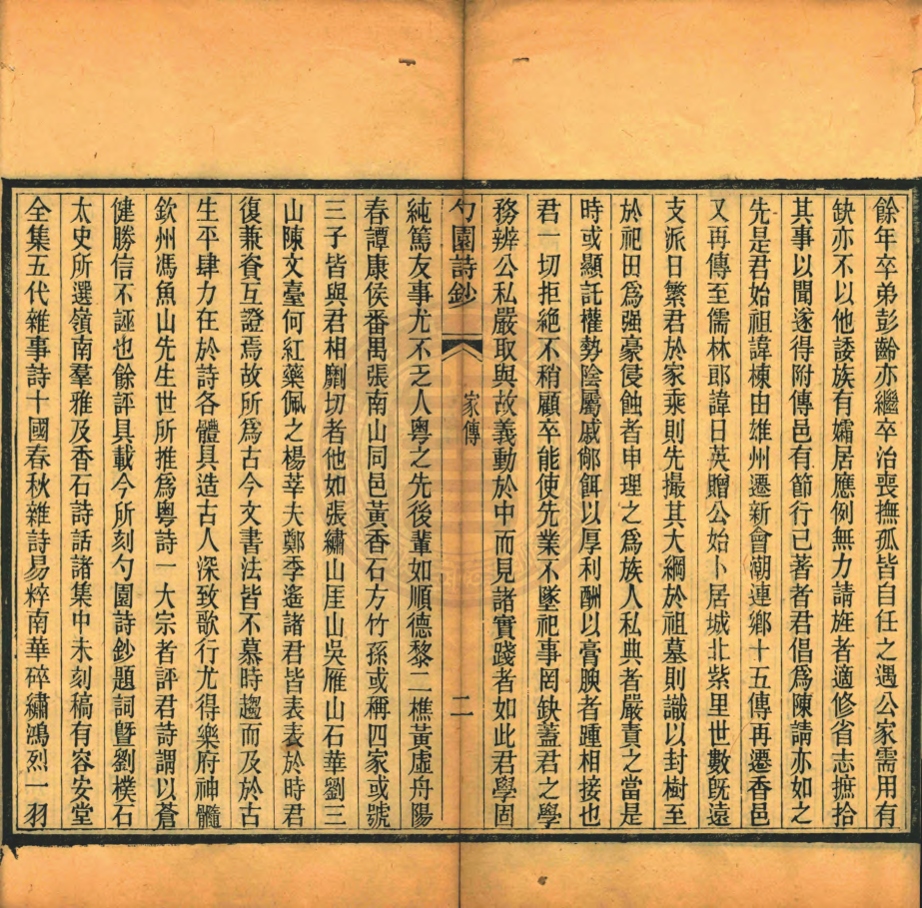 餘年卒弟彭齡亦繼卒治喪撫孤皆自任之遇公家需用有
缺亦不以他諉族有孀居應例無力請旌者適修省志摭拾
其事以聞遂得附傳邑有節行已著者君倡爲陳請亦如之
先是君始祖諱棟由雄州遷新會潮連鄉十五傳再遷香邑
又再傳至儒林郎諱日英贈公始卜居城北紫里世數既遠
支派日繁君於家乘則先撮其大綱於祖墓則識以封樹至
於祀田爲强豪侵蝕者申理之爲族人私典者嚴責之當是
時或顯託權勢陰屬戚鄰餌以厚利酬以膏腴者踵相接也
君一切拒絶不稍顧卒能使先業不墜祀事罔缺蓋君之學
務辨公私嚴取與故義動於中而見諸實踐者如此君學固
勺園詩鈔 家傳 二
純篤友事尤不乏人粵之先後輩如順德黎二樵黃虛舟陽
春譚康侯番禺張南山同邑黃香石方竹孫或稱四家或號
三子皆與君相劘切者他如張繡山厓山吳雁山石華劉三
山陳文臺何紅藥佩之楊莘夫鄭季遙諸君皆表表於時君
復兼資互證焉故所爲古今文書法皆不慕時趨而及於古
生平肆力在於詩各體具造古人深致歌行尤得樂府神髓
欽州馮魚山先生世所推爲粵詩一大宗者評君詩謂以蒼
健勝信不誣也餘評具載今所刻勺園詩鈔題詞曁劉樸石
太史所選嶺南羣雅及香石詩話諸集中未刻稿有容安堂
全集五代雜事詩十國春秋雜詩易粹南華碎繡鴻烈一羽